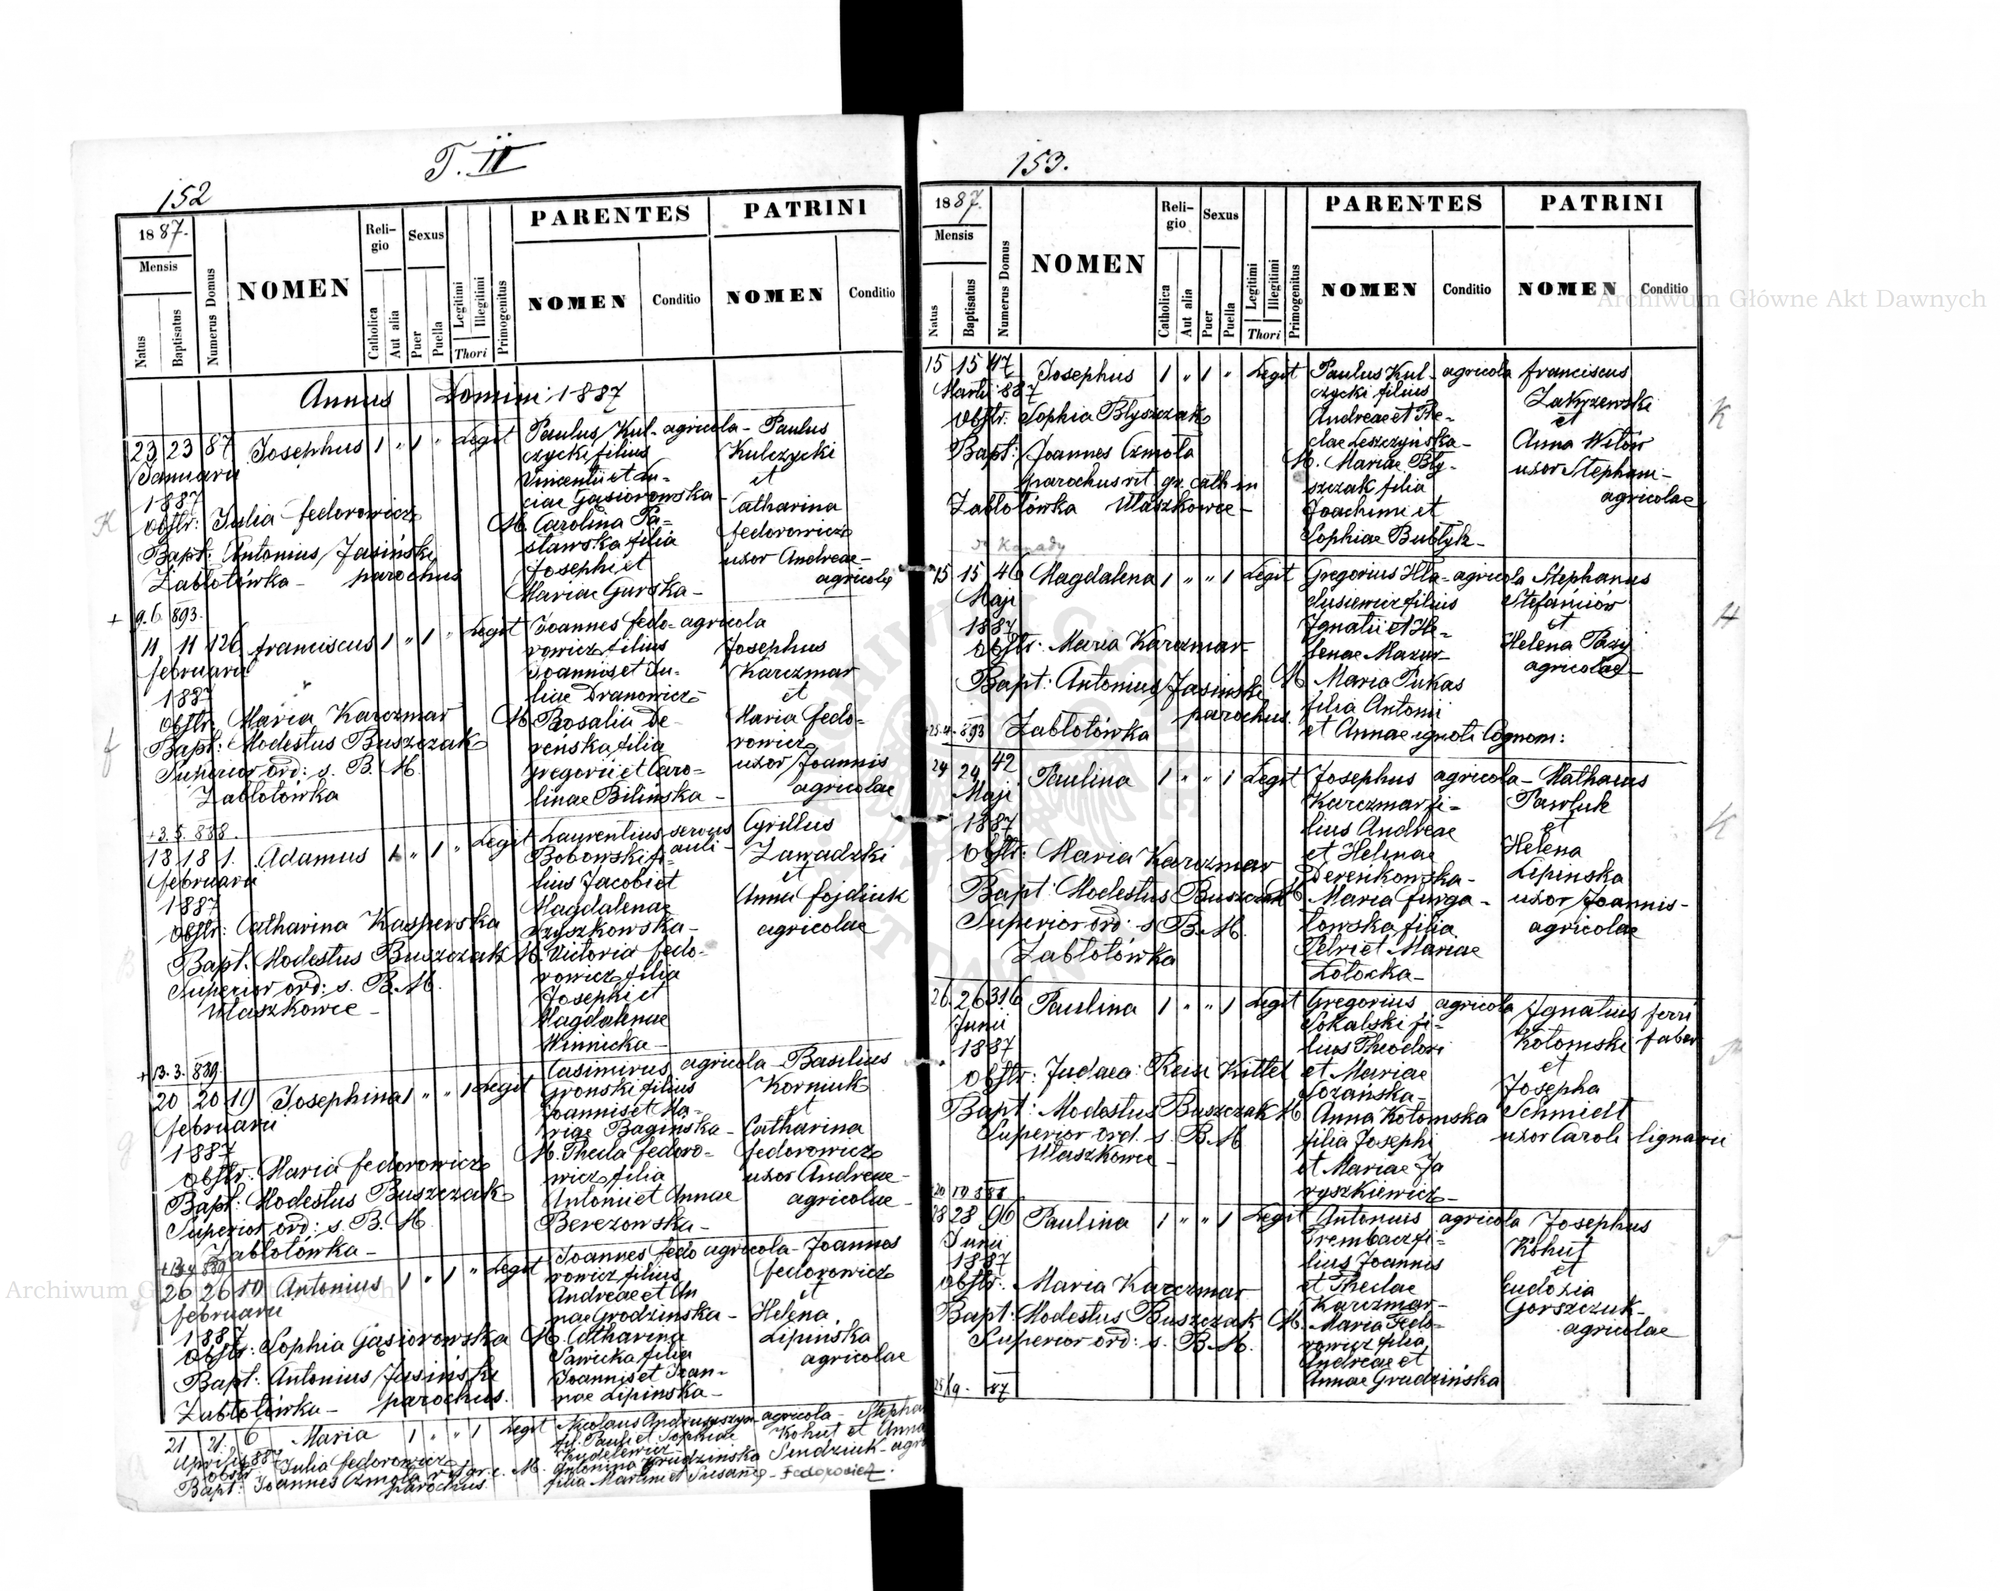 T. II
152
1887.
Mensis
Natus
Baptisatus
Numerus Domus
NOMEN
Religio
Catholica
Aut alia
Sexus
Puer
Puella
Legitimi
Illegitimi
Thori
Primogenitus
PARENTES
NOMEN
Conditio
PATRINI
NOMEN
Conditio
Annus Domini 1887
23 23 87 Josephus 1 " 1 " Legit
Januarii
1887
Obstr: Julia Fedorowicz
Bapt: Antonius Jasiński
Zabłotówka - parochus
Paulus Kul- agricola -
czycki filius
Vincentii et Lu-
ciae Gąsiorowska -
M. Carolina Pa-
sławska filia
Josephi et
Mariae Gurska -
Paulus
Kulczycki
et
Catharina
Fedorowicz
uxor Andreae -
agricolę
+ 9. 6. 893.
11 11 126 Franciscus 1 " 1 " Legit
Februarii
1887
Obstr: Maria Karczmar
Bapt: Modestus Buszczak
Superior ord: s. B. M.
Zabłotówka
Joannes Fedo- agricola
rowicz filius
Joannis et Ju-
liae Dranowicz -
M. Rosalia De-
reńska filia
Gregorii et Caro-
linae Bilińska -
Josephus
Karczmar
et
Maria Fedo-
rowicz
uxor Joannis
agricolae
+3. 5. 888.
18 18 1. Adamus 1 " 1 " Legit
Februarii
1887
Obstr: Catharina Kasperska
Bapt: Modestus Buszczak
Superior ord: s. B. M.
Ułaszkowce -
Laurentius servus
Bobowski fi- auli -
lius Jacobi et
Magdalenae
Krzyszkowska -
M. Victoria Fedo-
rowicz filia
Josephi et
Magdalenae
Winnicka -
Cyrillus
Zawadzki
et
Anna Fojdiuk
agricolae
+13. 3. 889.
20 20 19 Josephina 1 " " 1 Legit
Februarii
1887
Obstr: Maria Fedorowicz
Bapt: Modestus Buszczak
Superior ord: s. B. M.
Zabłotówka -
Casimirus agricola -
Gronski filius
Joannis et Ma-
riae Baginska -
M. Thecla Fedoro-
wicz filia
Antonii et Annae
Berezowska -
Basilius
Korniuk
et
Catharina
Fedorowicz
uxor Andreae -
agricolae -
26 26 10 Antonius 1 " 1 " Legit
Februarii
1887
Obstr: Sophia Gąsiorowska
Bapt: Antonius Jasiński
Zabłotówka - parochus.
Joannes Fedo agricola -
rowicz filius
Andreae et An
nae Grodzinska -
M. Catharina
Sawicka filia
Joannis et Joan-
nae Lipinska -
Joannes
Fedorowicz
et
Helena
Lipińska
agricolae
21 21. 6 Maria 1 " " 1 Legit
Aprilis 887
Obstr: Julia Fedorowicz
Bapt: Joannes Czmola rit. gr. c.
parochus
Nicolaus Andruszyn agricola -
fil. Pauli et Sophiae
M. Antonina Grudzinska
filia Martini et Susannę - Fedorowicz.
Stepha
Kohut et Anna
Sendziuk - agri
153.
1887.
Mensis
Natus
Baptisatus
Numerus Domus
NOMEN
Religio
Catholica
Aut alia
Sexus
Puer
Puella
Legitimi
Illegitimi
Thori
Primogenitus
PARENTES
NOMEN
Conditio
PATRINI
NOMEN
Conditio
15 15 47 Josephus 1 " 1 " Legit
Martii 887
Obstr: Sophia Błyszczak
Bapt: Joannes Czmola
parochus rit. gr. cath. in
Zabłotówka Ułaszkowce -
Paulus Kul- agricola
czycki filius
Andreae et The-
clae Leszczyńska -
M. Mariae Bły-
szczak filia
Joachimi et
Sophiae Bubłyk -
Franciscus
Zakrzewski
et
Anna Witów
uxor Stephani -
agricolae
K
Kanady
15 15 46 Magdalena 1 " " 1 Legit
Maji
1887
Obstr: Maria Karczmar
Bapt: Antonius Jasiński
parochus
Zabłotówka
Gregorius Hła- agricola
dusiewicz filius
Ignatii et He-
lenae Mazur -
M. Maria Pukas
filia Antonii
et Annae ignoti Cognom:
Stephanus
Stefaniów
et
Helena Pazij
agricolae -
H
24 24 42 Paulina 1 " " 1 Legit
Maji
1887
Obstr: Maria Karczmar
Bapt: Modestus Buszczak
Superior ord: s. B. M.
Zabłotówka
Josephus agricola -
Karczmar fi-
lius Andreae
et Helenae
Derenkowska -
M. Maria Furga -
łowska filia
Petri et Mariae
Łotocka -
Mathaeus
Pawluk
et
Helena
Lipinska
uxor Joannis -
agricolae
K
26 26 316 Paulina 1 " " 1 Legit
Junii
1887
Obstr: Judaea: Reisi Kittel
Bapt: Modestus Buszczak
Superior ord. s. B. M
Ułaszkowce -
Gregorius agricola
Sokalski fi-
lius Theodori
et Mariae
Sozańska -
M Anna Kotomska
filia Josephi
et Mariae Ja
ryszkiewicz -
Ignatius ferri
Kotomski faber
et
Josepha
Schmiedt
uxor Caroli lignarii
20 10 888
28 28 90 Paulina 1 " " 1 Legit
Junii
1887
Obstr: Maria Karczmar
Bapt: Modestus Buszczak
Superior ord: s. B. M.
Antonius agricola
Trembacz fi-
lius Joannis
et Theclae
Karczmar -
M. Maria Fedo-
rowicz filia
Andreae et
Annae Grudzińska
Josephus
Kohut
et
Eudoxia
Gorszczuk -
agricolae
25/9. 87
Archiwum Główne Akt Dawnych
Archiwum Główne Akt Dawnych